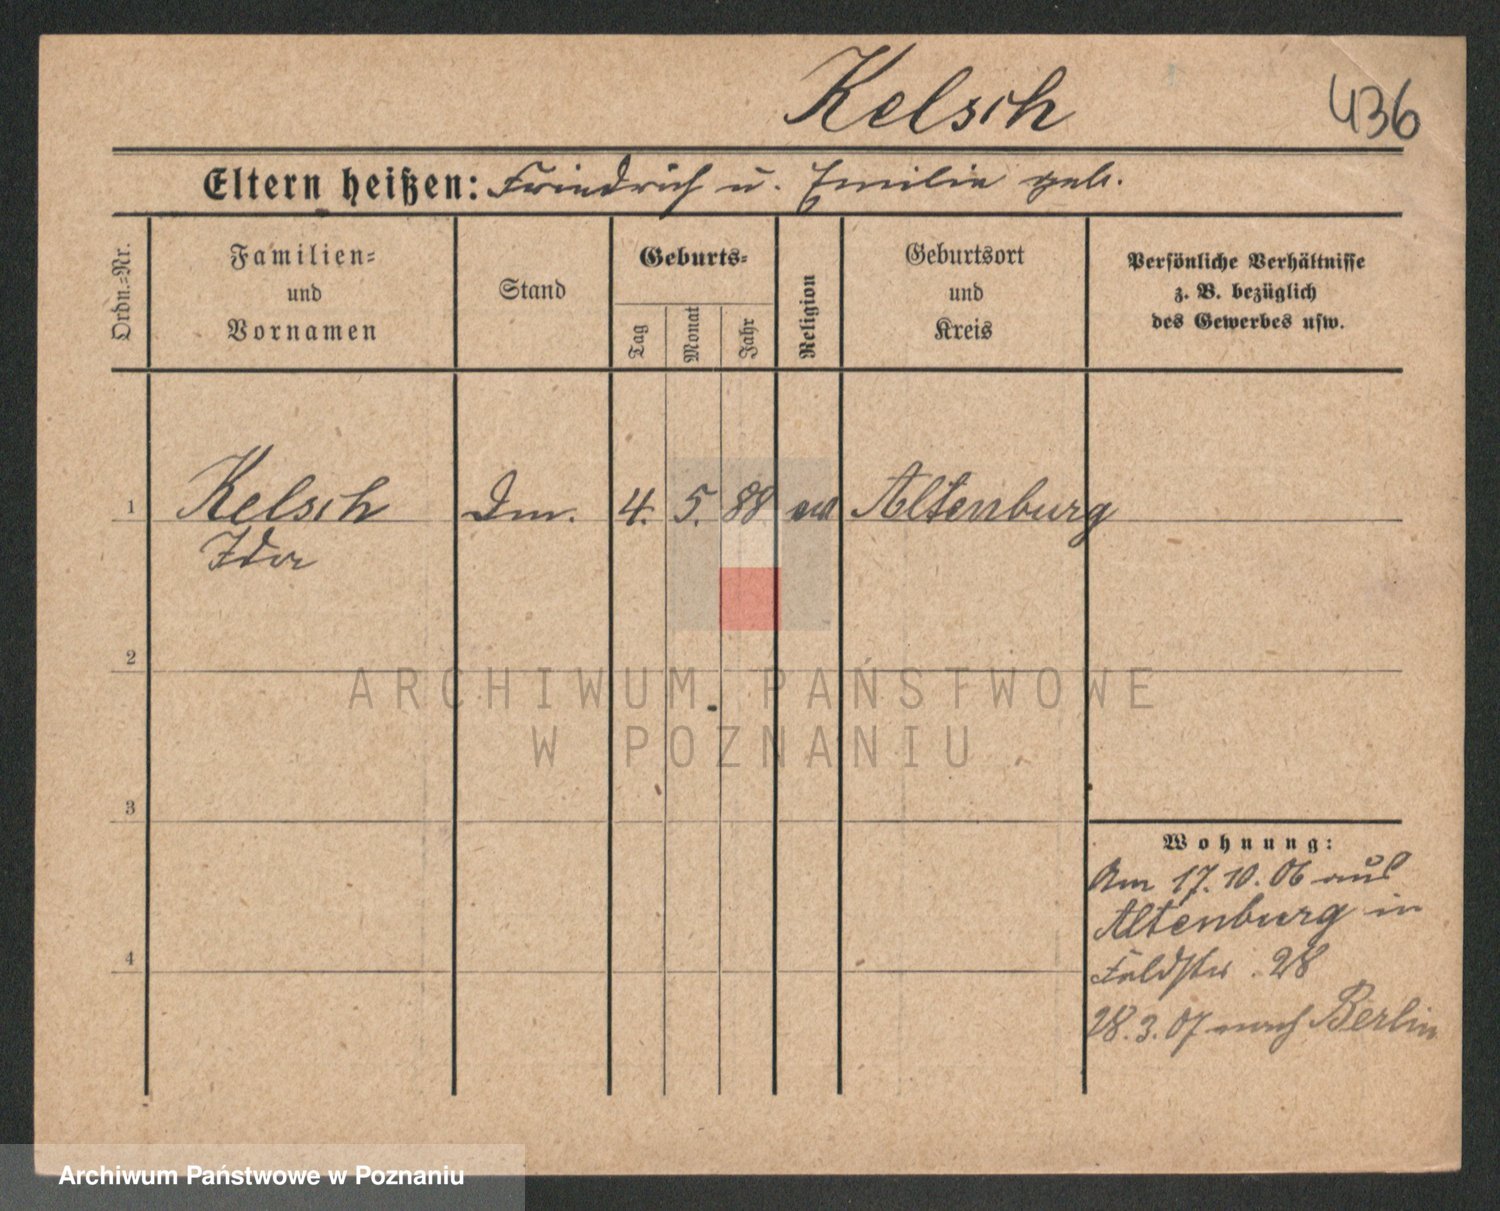 Kelsch
436
Eltern heißen: Friedrich u. Emilie geb.
Ordn.-Nr.
Familien-
und
Vornamen
Stand
Geburts-
Tag
Monat
Jahr
Religion
Geburtsort
und
Kreis
Persönliche Verhältnisse
z. B. bezüglich
des Gewerbes usw.
1
Kelsch
Ida
4. 5. 88
Altenburg
2
ARCHIWUM PAŃSTWOWE
W POZNANIU
3
Wohnung:
Am 17.10.06 aus
Altenburg in
Feldstr. 28
4
28.3.07 nach Berlin
Archiwum Państwowe w Poznaniu